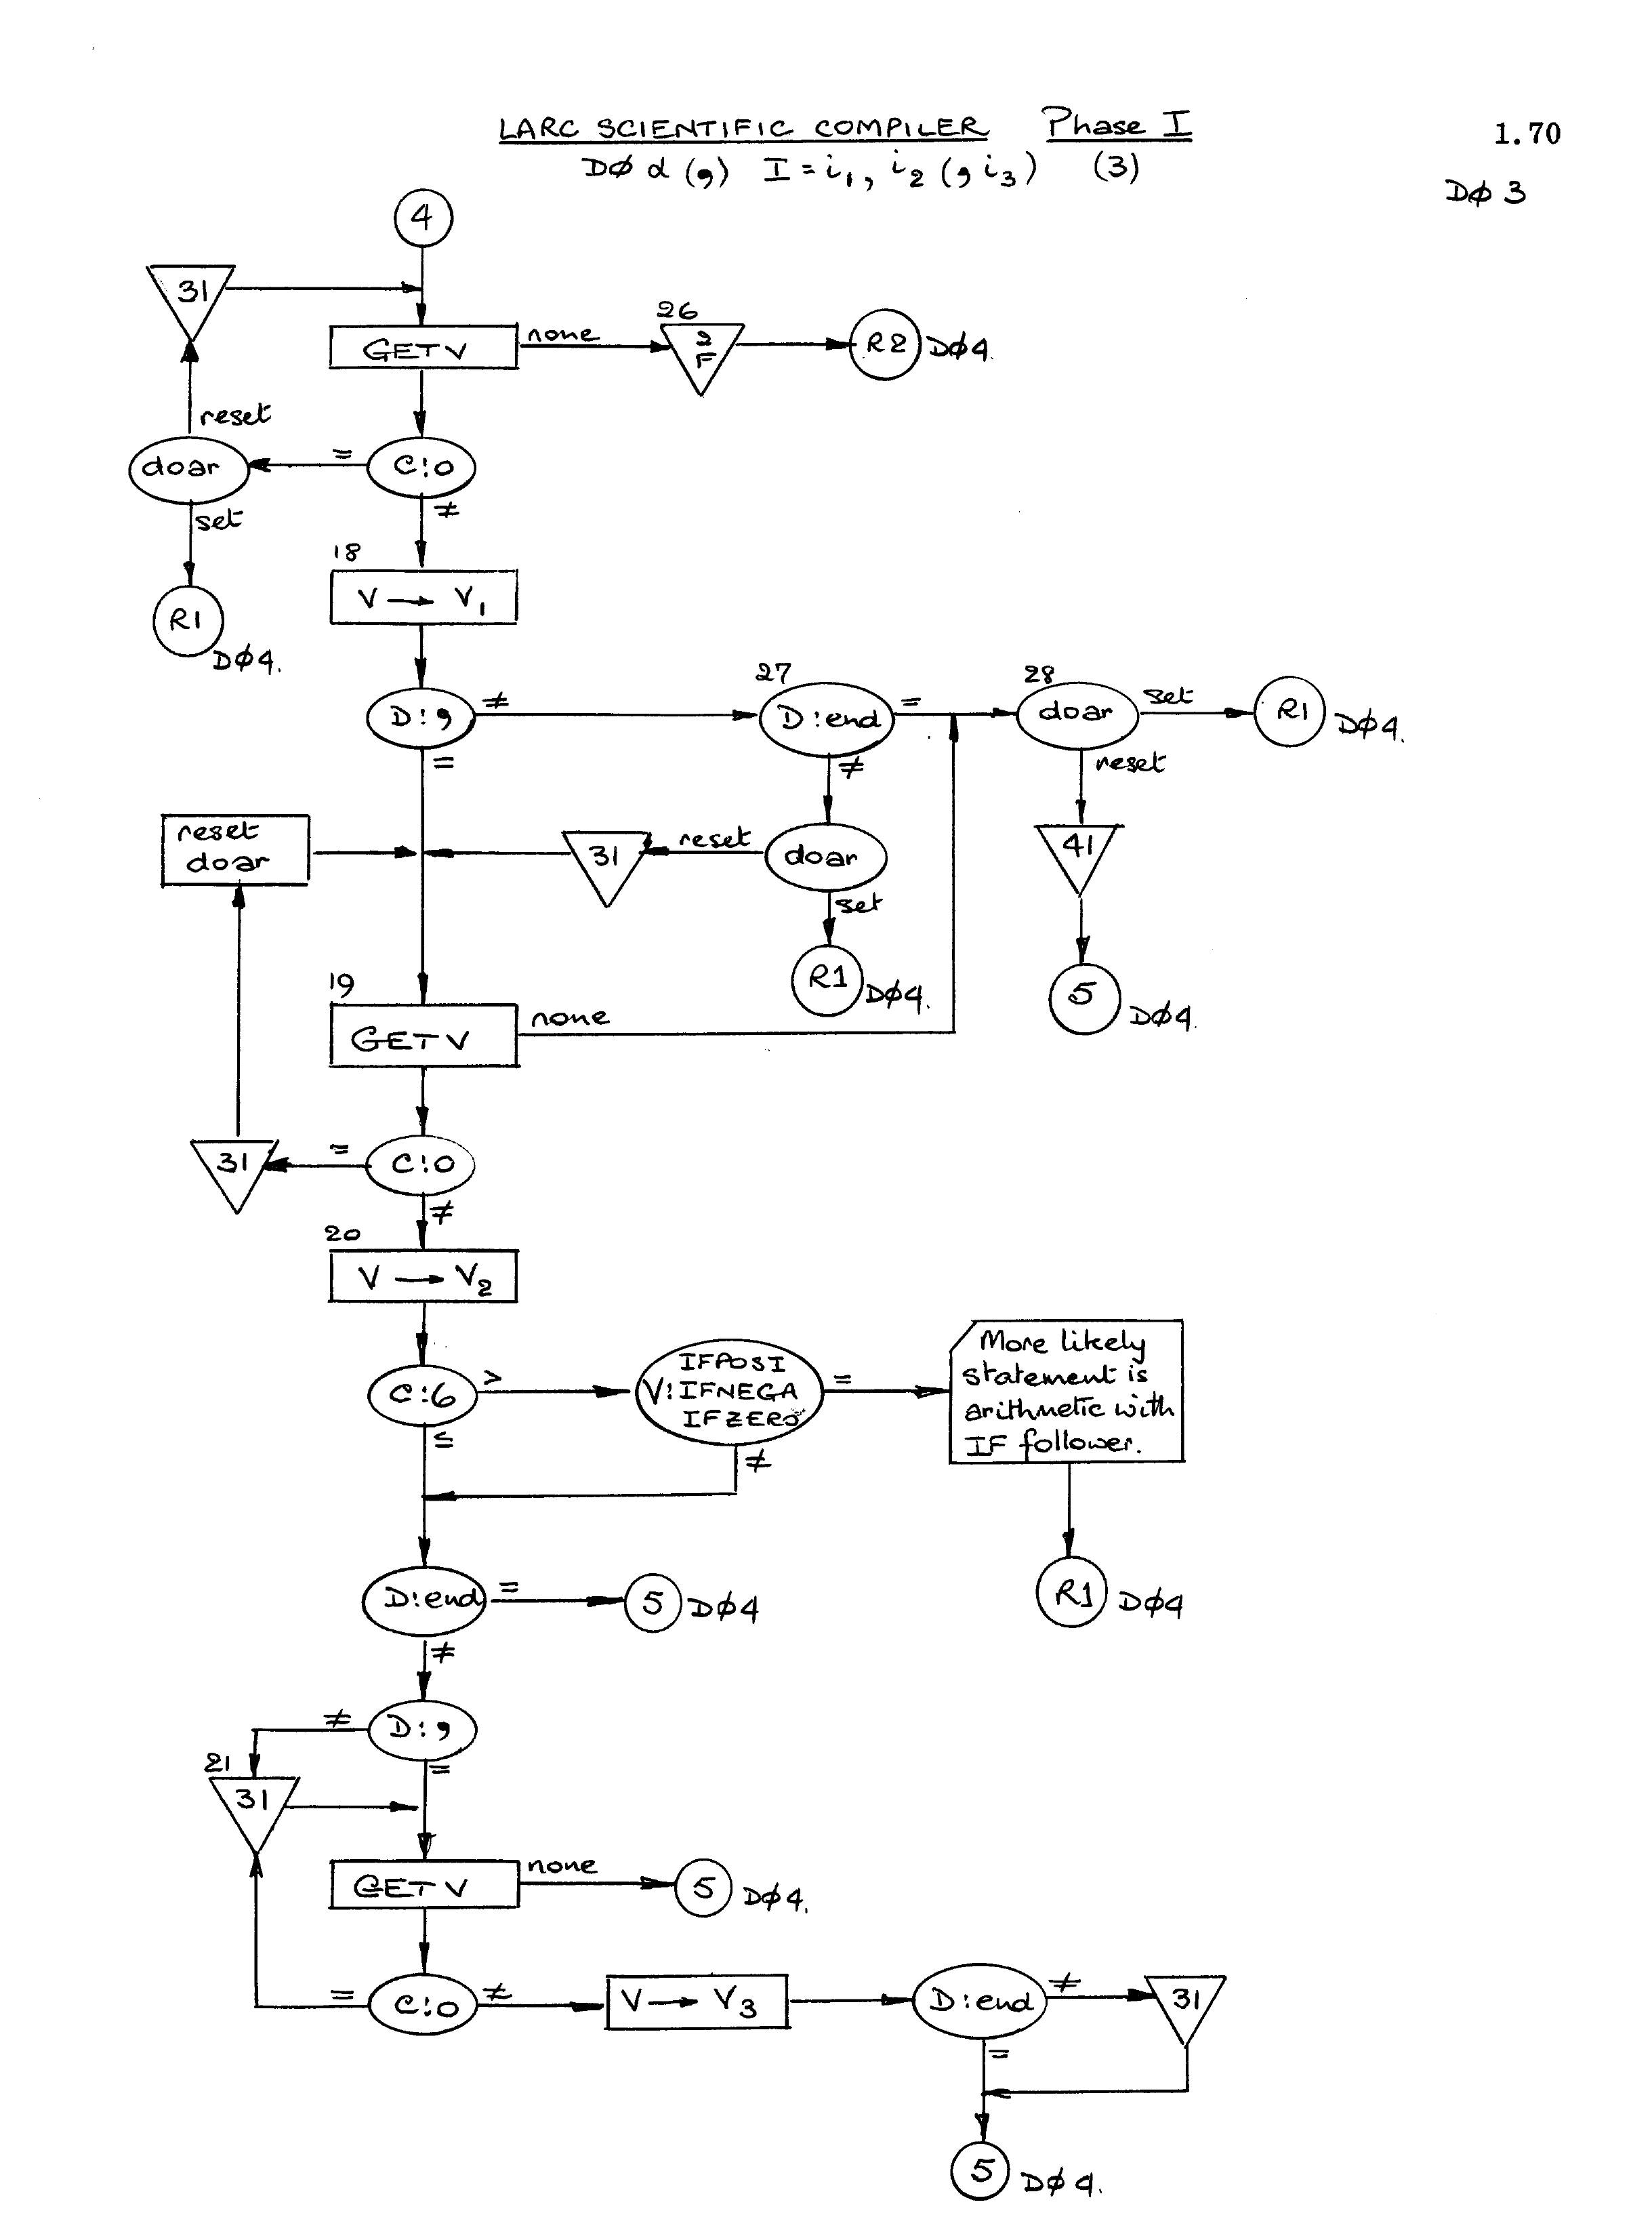 LARC SCIENTIFIC COMPILER Phase I
1.70
DØ α (,) I = i₁, i₂ (, i₃) (3)
DØ 3
4
31
26
GETV
none
2
F
R2
DØ4.
reset
doar
=
C:0
set
≠
18
V → V₁
R1
DØ4.
D:,
≠
27
D:end
=
28
doar
set
R1
DØ4.
=
≠
reset
reset
doar
31
reset
doar
41
set
R1
DØ4.
5
DØ4.
19
GETV
none
31
=
C:0
≠
20
V → V₂
C:6
>
IFPOSI
V:IFNEGA
IFZERO
=
More likely
statement is
arithmetic with
IF follower.
≤
≠
D:end
=
5
DØ4
R1
DØ4
≠
≠
D:,
21
31
=
GETV
none
5
DØ4.
=
C:0
≠
V → V₃
D:end
≠
31
=
5
DØ4.